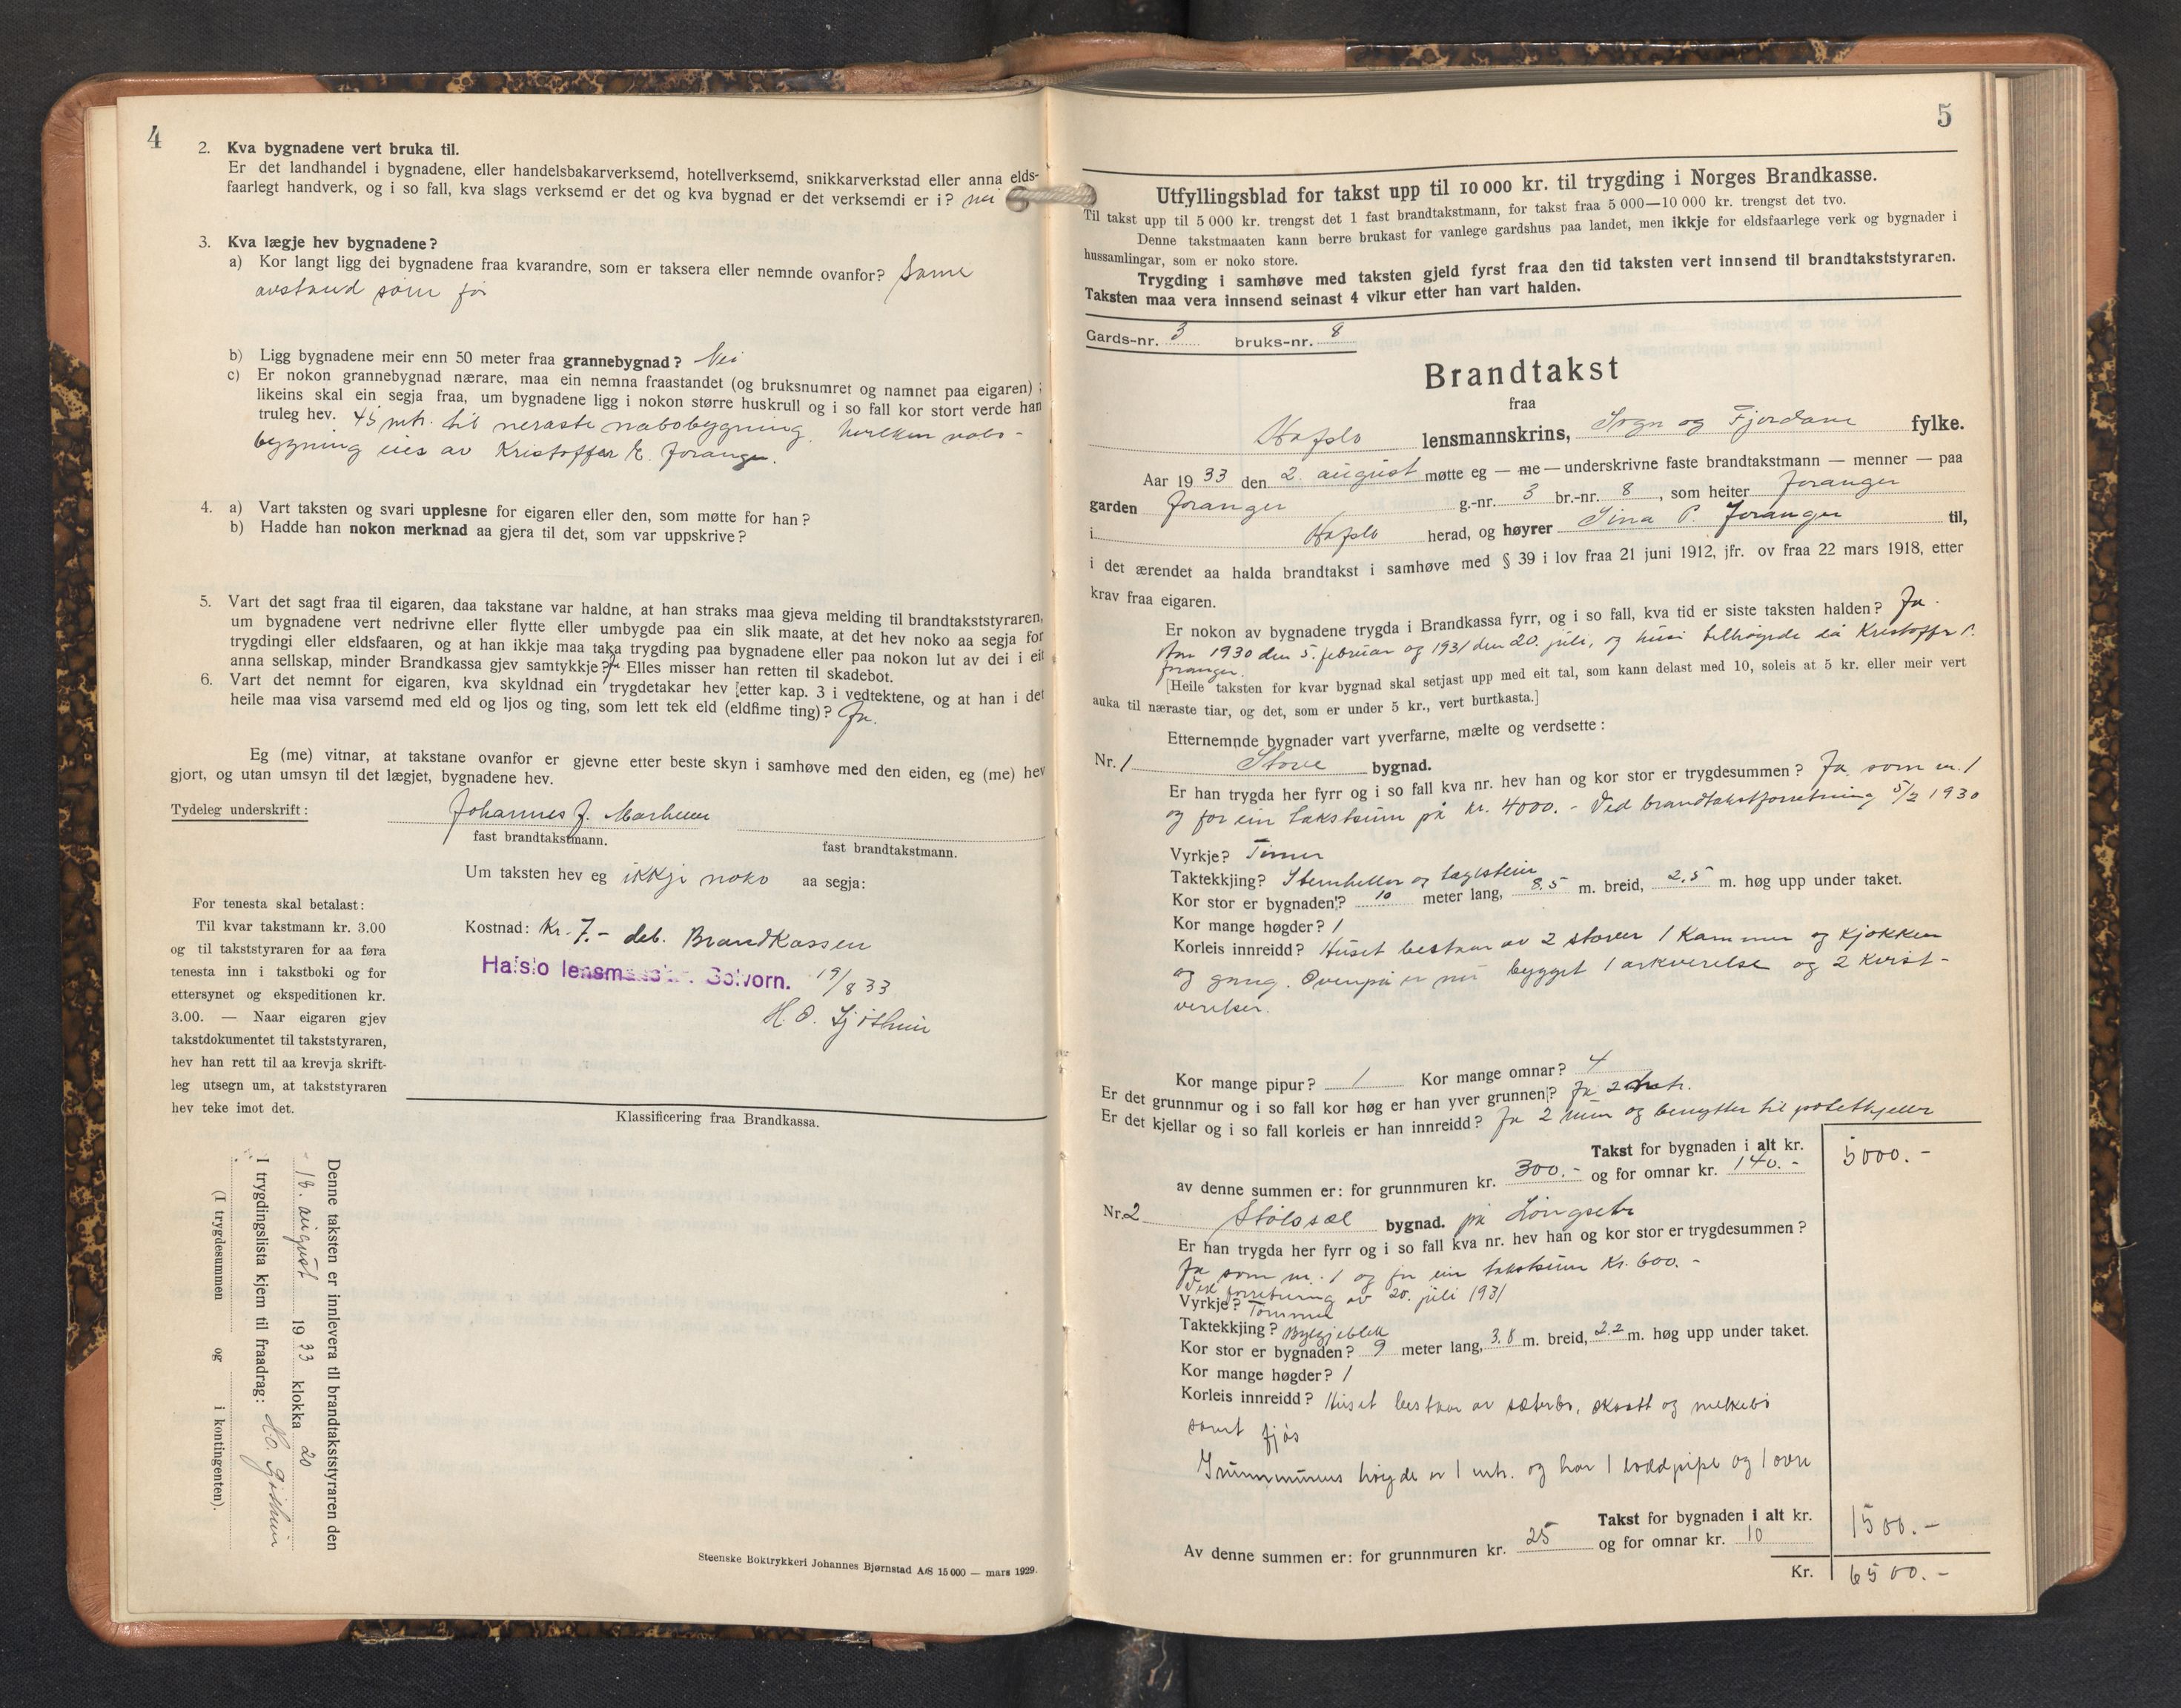 4
2. Kva bygnadene vert bruka til.
Er det landhandel i bygnadene, eller handelsbakarverksemd, hotellverksemd, snikkarverkstad eller anna elds-
faarlegt handverk, og i so fall, kva slags verksemd er det og kva bygnad er det verksemdi er i? nei
3. Kva lægje hev bygnadene?
a) Kor langt ligg dei bygnadene fraa kvarandre, som er taksera eller nemnde ovanfor? Same
avstand som før
b) Ligg bygnadene meir enn 50 meter fraa grannebygnad? Nei
c) Er nokon grannebygnad nærare, maa ein nemna fraastandet (og bruksnumret og namnet paa eigaren);
likeins skal ein segja fraa, um bygnadene ligg i nokon større huskrull og i so fall kor stort verde han
truleg hev. 45 mtr. til neraste nabobygning, hvilken nabo-
bygning eies av Kristoffer E. Joranger.
4. a) Vart taksten og svari upplesne for eigaren eller den, som møtte for han?
b) Hadde han nokon merknad aa gjera til det, som var uppskrive?
5. Vart det sagt fraa til eigaren, daa takstane var haldne, at han straks maa gjeva melding til brandtakststyraren,
um bygnadene vert nedrivne eller flytte eller umbygde paa ein slik maate, at det hev noko aa segja for
trygdingi eller eldsfaaren, og at han ikkje maa taka trygding paa bygnadene eller paa nokon lut av dei i eit
anna sellskap, minder Brandkassa gjev samtykkje? Ja. Elles misser han retten til skadebot.
6. Vart det nemnt for eigaren, kva skyldnad ein trygdetakar hev [etter kap. 3 i vedtektene, og at han i det
heile maa visa varsemd med eld og ljos og ting, som lett tek eld (eldfime ting)? Ja.
Eg (me) vitnar, at takstane ovanfor er gjevne etter beste skyn i samhøve med den eiden, eg (me) hev
gjort, og utan umsyn til det lægjet, bygnadene hev.
Tydeleg underskrift: Johannes J.
fast brandtakstmann. fast brandtakstmann.
Um taksten hev eg ikkje noko aa segja:
For tenesta skal betalast:
Til kvar takstmann kr. 3.00
og til takststyraren for aa føra
tenesta inn i takstboki og for
ettersynet og ekspeditionen kr.
3.00. — Naar eigaren gjev
takstdokumentet til takststyraren,
hev han rett til aa krevja skrift-
leg utsegn um, at takststyraren
hev teke imot det.
Kostnad: Kr. 7.- deb. Brandkassen
Hafslo lensmannsk. Solvorn. 19/8 33
H. O.
Klassificering fraa Brandkassa.
Denne taksten er innlevera til brandtakststyraren den
18. august 1933 klokka 20
I trygdingslista kjem til fraadrag: H. O.
(I trygdesummen og i kontingenten).
Steenske Boktrykkeri Johannes Bjørnstad A/S 15 000 — mars 1929.
5
Utfyllingsblad for takst upp til 10 000 kr. til trygding i Norges Brandkasse.
Til takst upp til 5 000 kr. trengst det 1 fast brandtakstmann, for takst fraa 5 000—10 000 kr. trengst det tvo.
Denne takstmaaten kann berre brukast for vanlege gardshus paa landet, men ikkje for eldsfaarlege verk og bygnader i
hussamlingar, som er noko store.
Trygding i samhøve med taksten gjeld fyrst fraa den tid taksten vert innsend til brandtakststyraren.
Taksten maa vera innsend seinast 4 vikur etter han vart halden.
Gards-nr. 3 bruks-nr. 8
Brandtakst
fraa
Hafslo lensmannskrins, Sogn og Fjordane fylke.
Aar 1933 den 2. august møtte eg — me — underskrivne faste brandtakstmann — menner — paa
garden Joranger g.-nr. 3 br.-nr. 8, som heiter Joranger
i Hafslo herad, og høyrer Sina P. Joranger til,
i det ærendet aa halda brandtakst i samhøve med § 39 i lov fraa 21 juni 1912, jfr. ov fraa 22 mars 1918, etter
krav fraa eigaren.
Er nokon av bygnadene trygda i Brandkassa fyrr, og i so fall, kva tid er siste taksten halden? Ja.
Aar 1930 den 5. februar og 1931 den 20. juli, og husi tilhøyrde då Kristoffer P.
Joranger.
[Heile taksten for kvar bygnad skal setjast upp med eit tal, som kann delast med 10, soleis at 5 kr. eller meir vert
auka til næraste tiar, og det, som er under 5 kr., vert burtkasta.]
Etternemnde bygnader vart yverfarne, mælte og verdsette:
Nr. 1 Stove bygnad.
Er han trygda her fyrr og i so fall kva nr. hev han og kor stor er trygdesummen? Ja som nr. 1
og for ein takstsum på kr. 4000.- Ved brandtakstforretning 5/2 1930
Vyrkje? Timer
Taktekkjing? Stenheller og taglstein
Kor stor er bygnaden? 10 meter lang, 8.5 m. breid, 2.5 m. høg upp under taket.
Kor mange høgder? 1
Korleis innreidd? Huset bestaar av 2 stover 1 kammer og kjøkken
og gang. Ovenpå er nu bygget 1 arkverelse og 2 kvist-
verelser.
Kor mange pipur? 1 Kor mange omnar? 4
Er det grunnmur og i so fall kor høg er han yver grunnen? Ja 2 mtr.
Er det kjellar og i so fall korleis er han innreidd? Ja 2 rum og benytter til potetkjeller
Takst for bygnaden i alt kr. 5000.-
av denne summen er: for grunnmuren kr. 300.- og for omnar kr. 140.-
Nr. 2 Stølssæl bygnad. på
Er han trygda her fyrr og i so fall kva nr. hev han og kor stor er trygdesummen?
Ja som nr. 1 og for ein takstsum Kr. 600.-
Ved forretning av 20. juli 1931
Vyrkje? Tømmer
Taktekkjing? Bylgjeblekk
Kor stor er bygnaden? 9 meter lang, 3.8 m. breid, 2.2 m. høg upp under taket.
Kor mange høgder? 1
Korleis innreidd? Huset bestaar av sæterbu, skaatt og melkebu
samt fjøs
Grunnmurens høgde er 1 mtr. og har 1 pipe og 1 ovn
Takst for bygnaden i alt kr. 1500.-
Av denne summen er: for grunnmuren kr. 25 og for omnar kr. 10
Kr. 6500.-